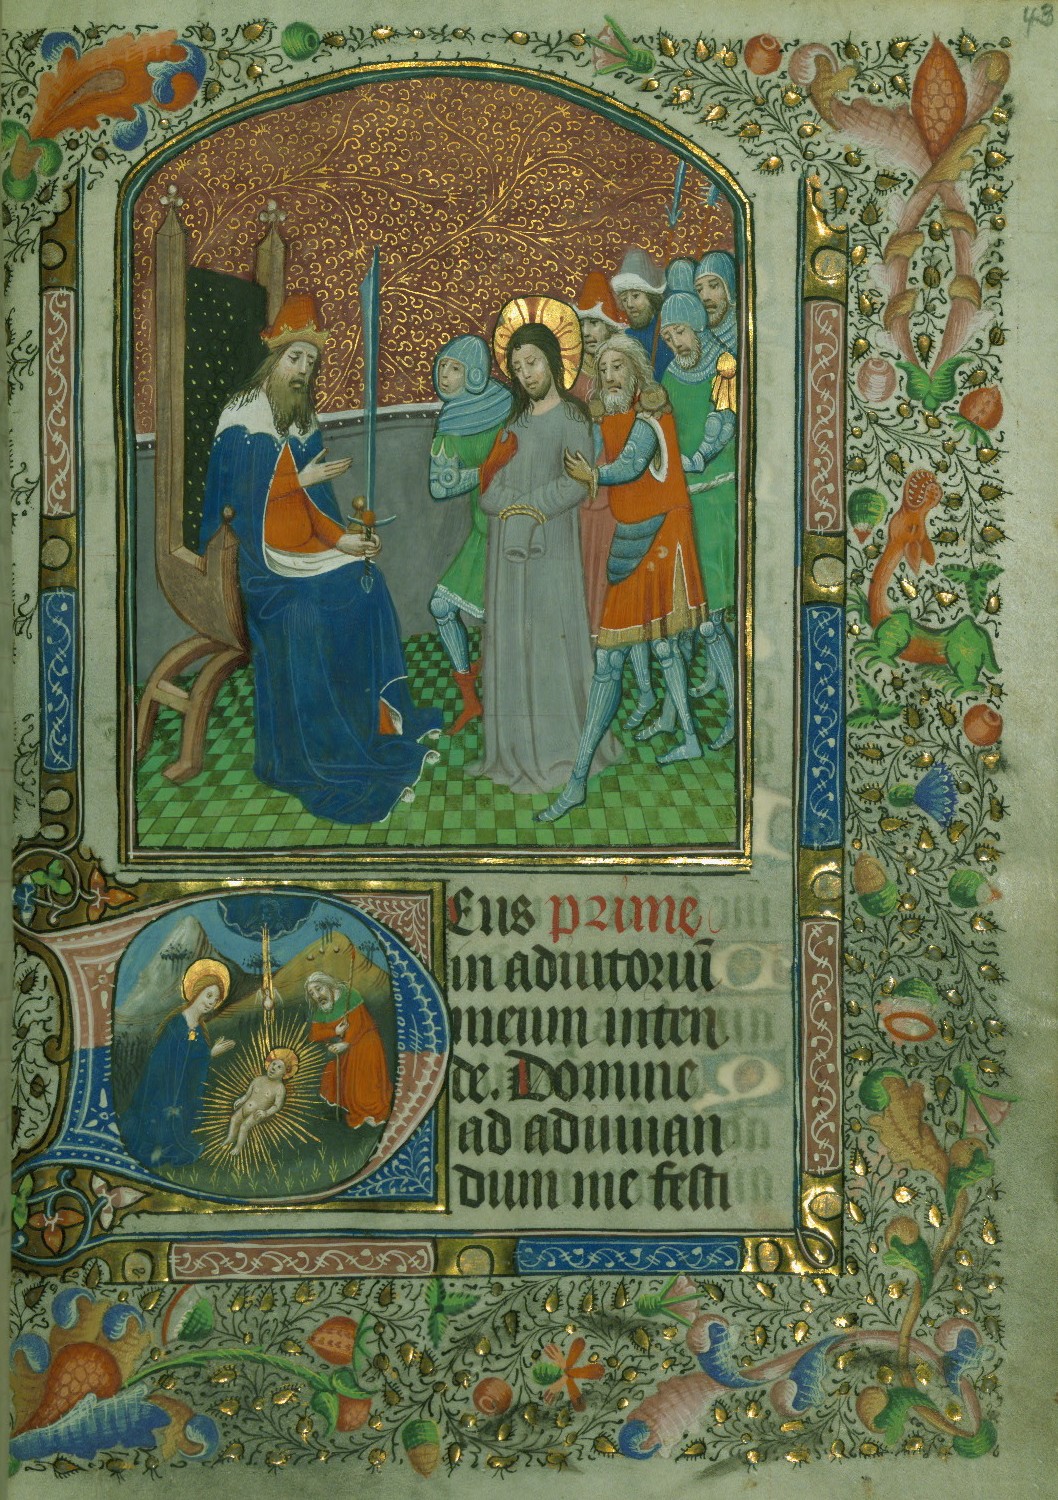 43
Deus prime
in adiutoriū
meum inten
de. Domine
ad adiuuan
dum me festi